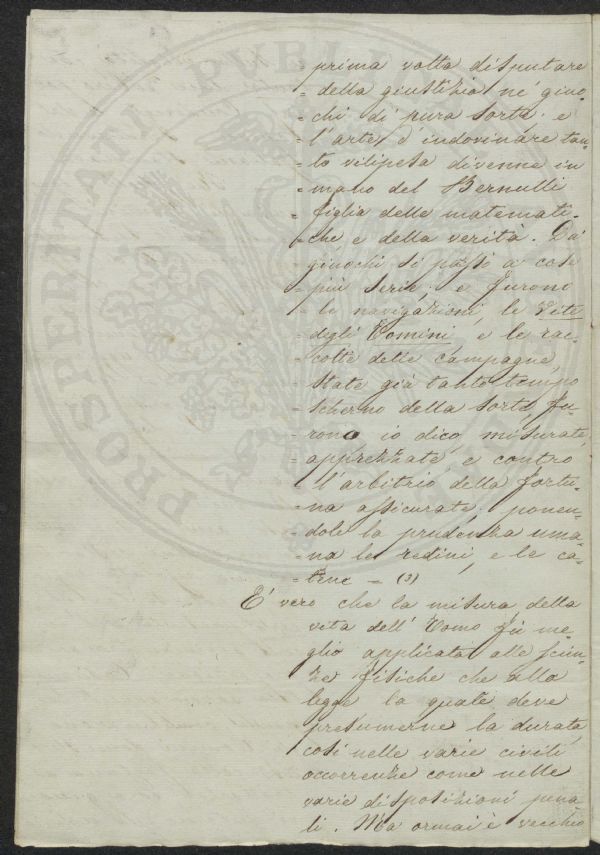 prima volta disputare
= della giustizia ne' giuo=
= chi di pura sorte; e
= l'arte d'indovinare tan=
= to vilipesa divenne in
= mano del Bernulli
= figlia delle matemati=
= che e della verità. Da'
= giuochi si passò a cose
= più serie; e furono
= le navigazioni, le Vite
= degli Uomini, e le rac=
= colte delle campagne,
= state già tanto tempo
= scherno della sorte, fu=
= rono, io dico, misurate,
= apprezzate, e contro
= l'arbitrio della fortu=
= na assicurate; ponen=
= dole la prudenza uma=
= na le redini, e le ca=
= tene = (3)
E' vero che la misura della
vita dell'Uomo fù me=
glio applicata alle scien=
ze fisiche che alla
legge la quale deve
presumerne la durata
così nelle varie civili
occorrenze come nelle
varie disposizioni pena=
li. Ma ormai è vecchio
PROSPERITATI PUBLICAE